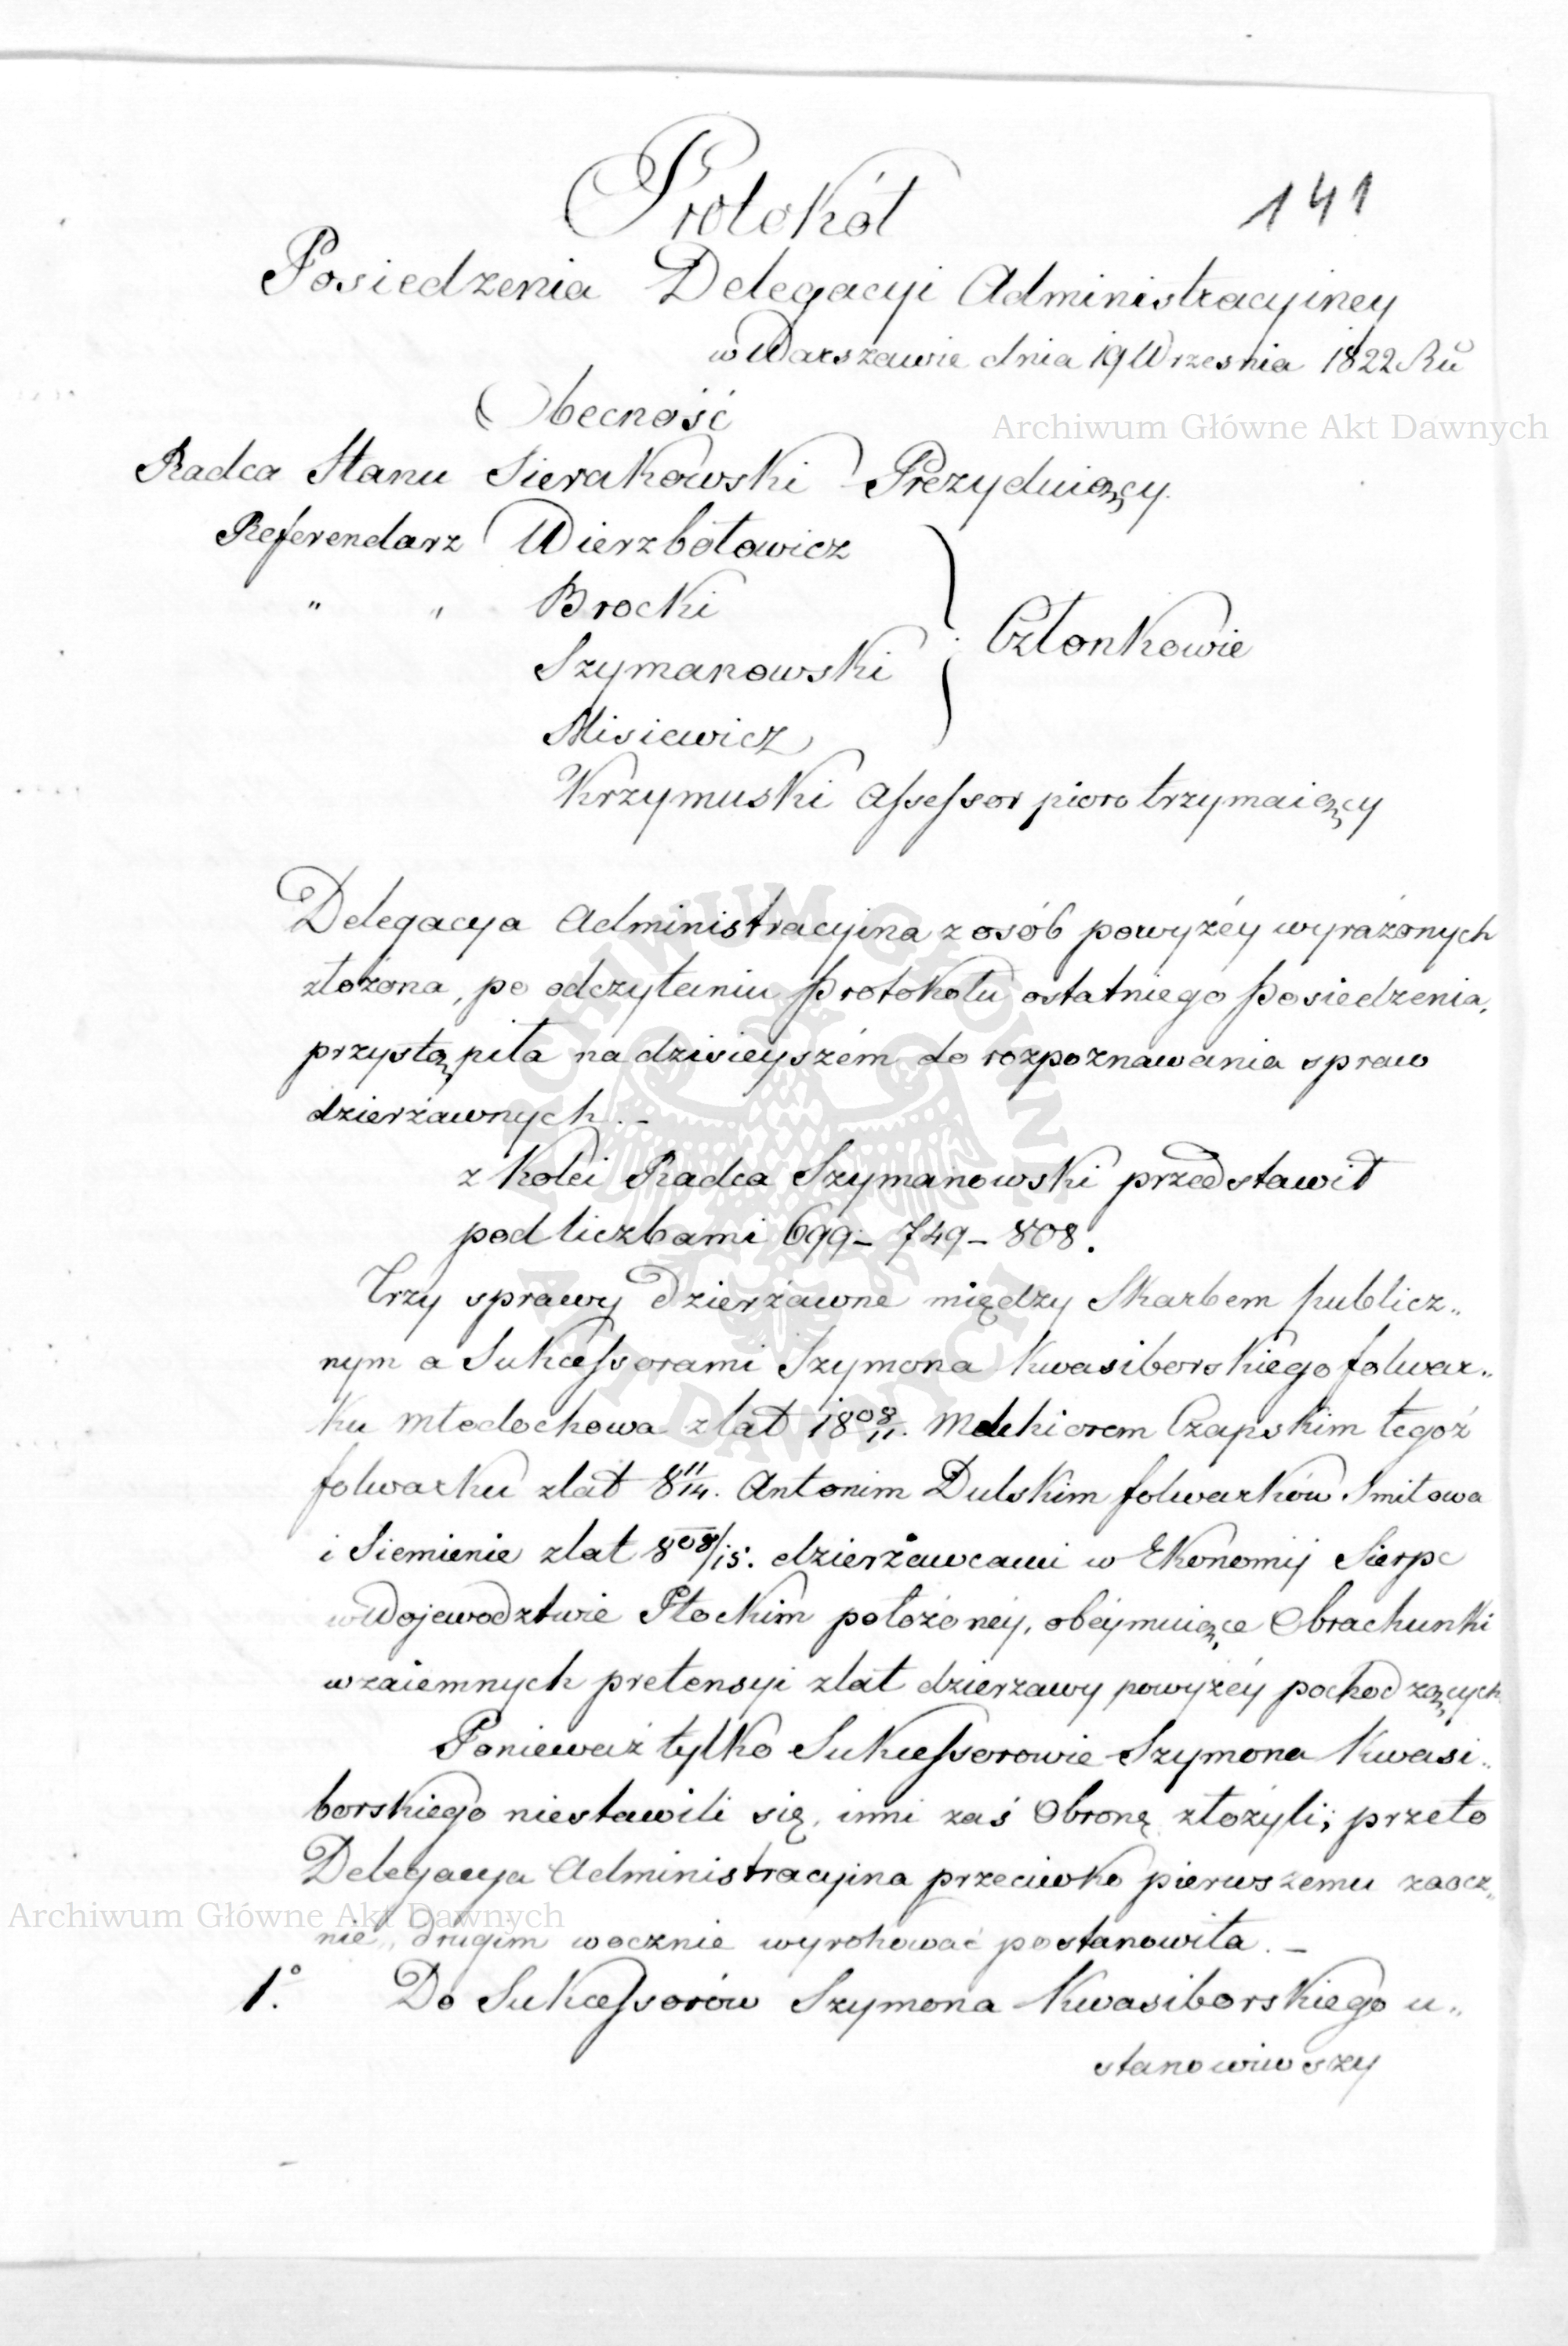 Protokół
141
Posiedzenia Delegacyi Administracyiney
w Warszawie dnia 19 Wrzesnia 1822 Rů
Obecność
Archiwum Główne Akt Dawnych
Radca Stanu Sierakowski Prezyduiący.
Referendarz Wierzbołowicz
" " Brocki
Członkowie
Szymanowski
Misiewicz
Krzymuski Assessor pioro trzymaiący
Delegacya Administracyina z osób powyżéy wyrażonych
złożona, po odczytaniu Protokołu ostatniego Posiedzenia,
przystąpiła na dzisieyszém do rozpoznawania spraw
dzierżawnych. –
z kolei Radca Szymanowski przedstawił
pod liczbami 699 – 749 – 808.
Trzy sprawy dzierżawne między Skarbem publicz„
nym a Sukcessorami Szymona Kwasiborskiego folwar„
ku Młodochowa z lat 1808/11. Melchiorem Czapskim tegoż
folwarku z lat 811/14. Antonim Dulskim folwarków Smiłowa
i Siemienie z lat 808/15. dzierżawcami w Ekonomij Sierpc
w Województwie Płockim położonéy, obéymuiące Obrachunki
wzaiemnych pretensyi z lat dzierzawy powyżéy pochodzących
Ponieważ tylko Sukcessorowie Szymona Kwasi„
borskiego niestawili się, inni zaś Obronę złożyli; przeto
Delegacya Administracyina przeciwko pierwszemu zaocz„
nie, drugim wocznie wyrokować postanowiła. –
Archiwum Główne Akt Dawnych
1.° Do Sukcessorów Szymona Kwasiborskiego u„
stanowiwszy
ARCHIWUM GŁÓWNE AKT DAWNYCH